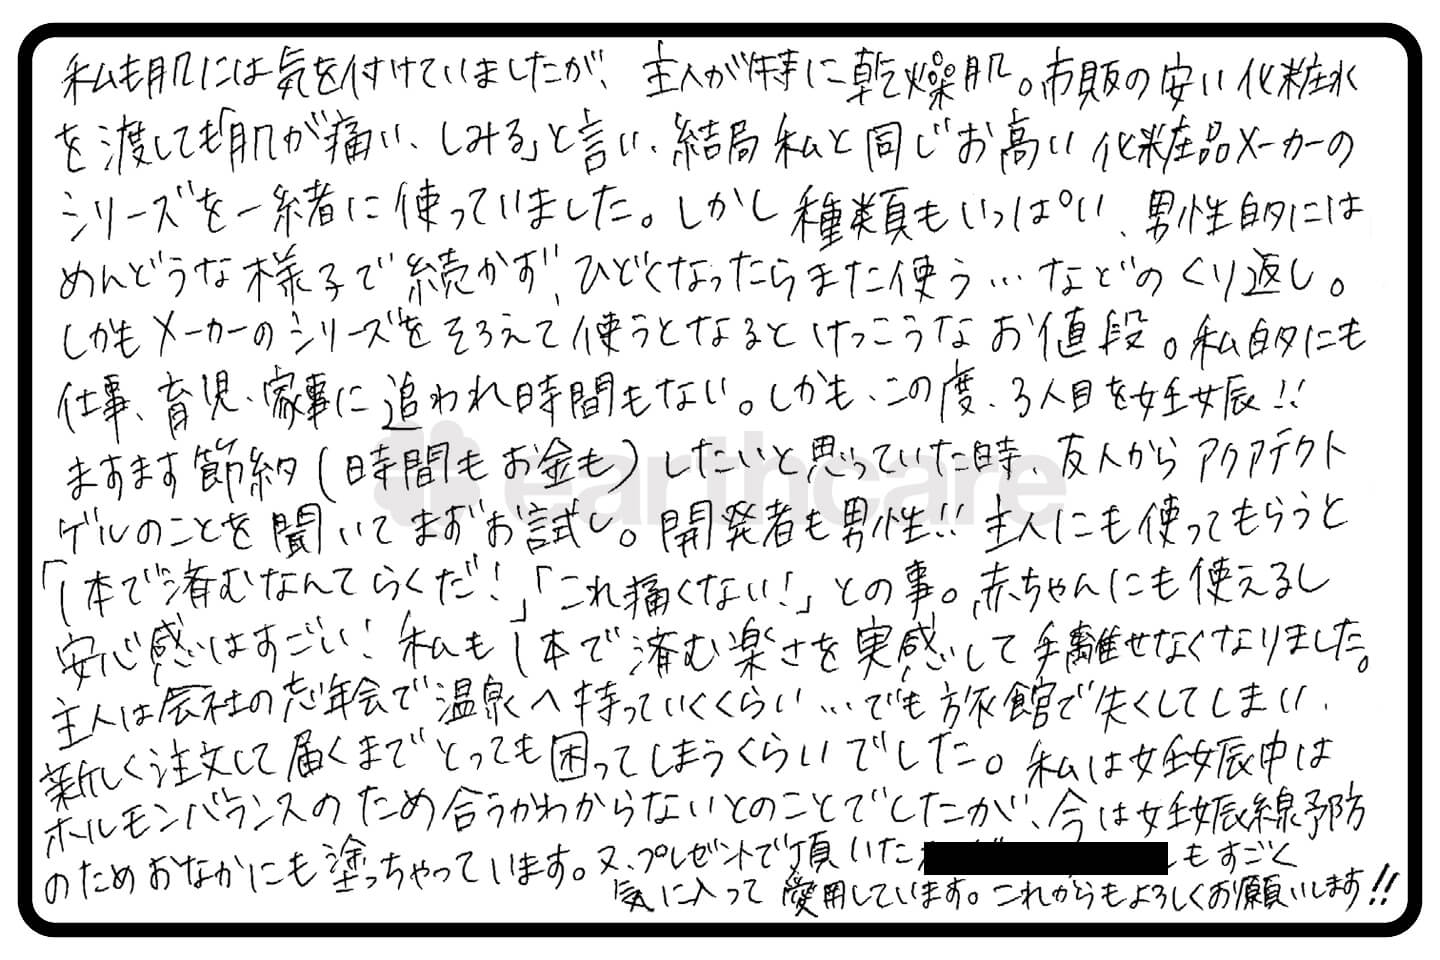 私も肌には気を付けていましたが、主人が特に乾燥肌。市販の安い化粧水
を渡しても「肌が痛い、しみる」と言い、結局私と同じお高い化粧品メーカーの
シリーズを一緒に使っていました。しかし種類もいっぱい、男性的には
めんどうな様子で続かず、ひどくなったらまた使う…などのくり返し。
しかもメーカーのシリーズをそろえて使うとなるとけっこうなお値段。私的にも
仕事、育児、家事に追われ時間もない。しかも、この度、3人目を妊娠!!
ますます節約(時間もお金も)したいと思っていた時、友人からアクアテクト
earthcare
ゲルのことを聞いてまずお試し。開発者も男性!!主人にも使ってもらうと
「1本で済むなんてらくだ!」「これ痛くない!」との事。赤ちゃんにも使えるし
安心感はすごい!私も1本で済む楽さを実感して手離せなくなりました。
主人は会社の忘年会で温泉へ持っていくくらい…でも旅館で失くしてしまい、
新しく注文して届くまでとっても困ってしまうくらいでした。私は妊娠中は
ホルモンバランスのため合うかわからないとのことでしたが、今は妊娠線予防
のためおなかにも塗っちゃっています。又、プレゼントで頂いた もすごく
気に入って愛用しています。これからもよろしくお願いします!!